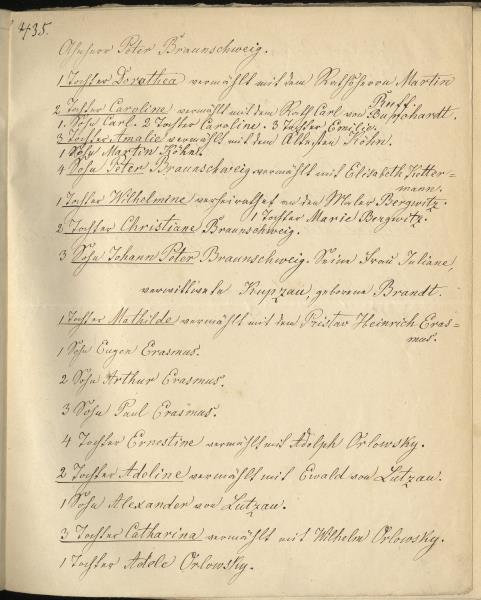 435.
Ahnherr Peter Braunschweig.
1 Tochter Dorothea vermählt mit dem Rathsherrn Martin
Ruff.
2 Tochter Caroline vermählt mit dem Rath Carl von Buschhardt.
1 Sohn Carl. 2 Tochter Caroline. 3 Tochter Emilie.
3 Tochter Amalie vermählt mit dem Ältesten Köhn.
1 Sohn Martin Köhn.
4 Sohn Peter Braunschweig vermählt mit Elisabeth Kütter=
mann.
1 Tochter Wilhelmine verheirathet an den Maler Bergwitz.
1 Tochter Marie Bergwitz.
2 Tochter Christiane Braunschweig.
3 Sohn Johann Peter Braunschweig. Seine Frau Juliane,
verwittwete Kupzau, geborene Brandt.
1 Tochter Mathilde vermählt mit dem Pristav Heinrich Eras=
mus.
1 Sohn Eugen Erasmus.
2 Sohn Arthur Erasmus.
3 Sohn Paul Erasmus.
4 Tochter Ernestine vermählt mit Adolph Orlowsky.
2 Tochter Adoline vermählt mit Ewald von Lutzau.
1 Sohn Alexander von Lutzau.
3 Tochter Catharina vermählt mit Wilhelm Orlowsky.
1 Tochter Adele Orlowsky.